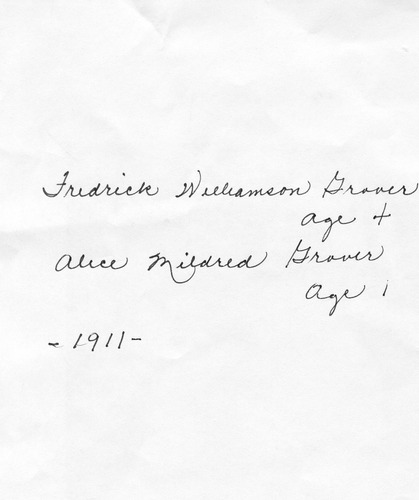 Fredrick Williamson Grover
age 4
Alice Mildred Grover
Age 1
- 1911-